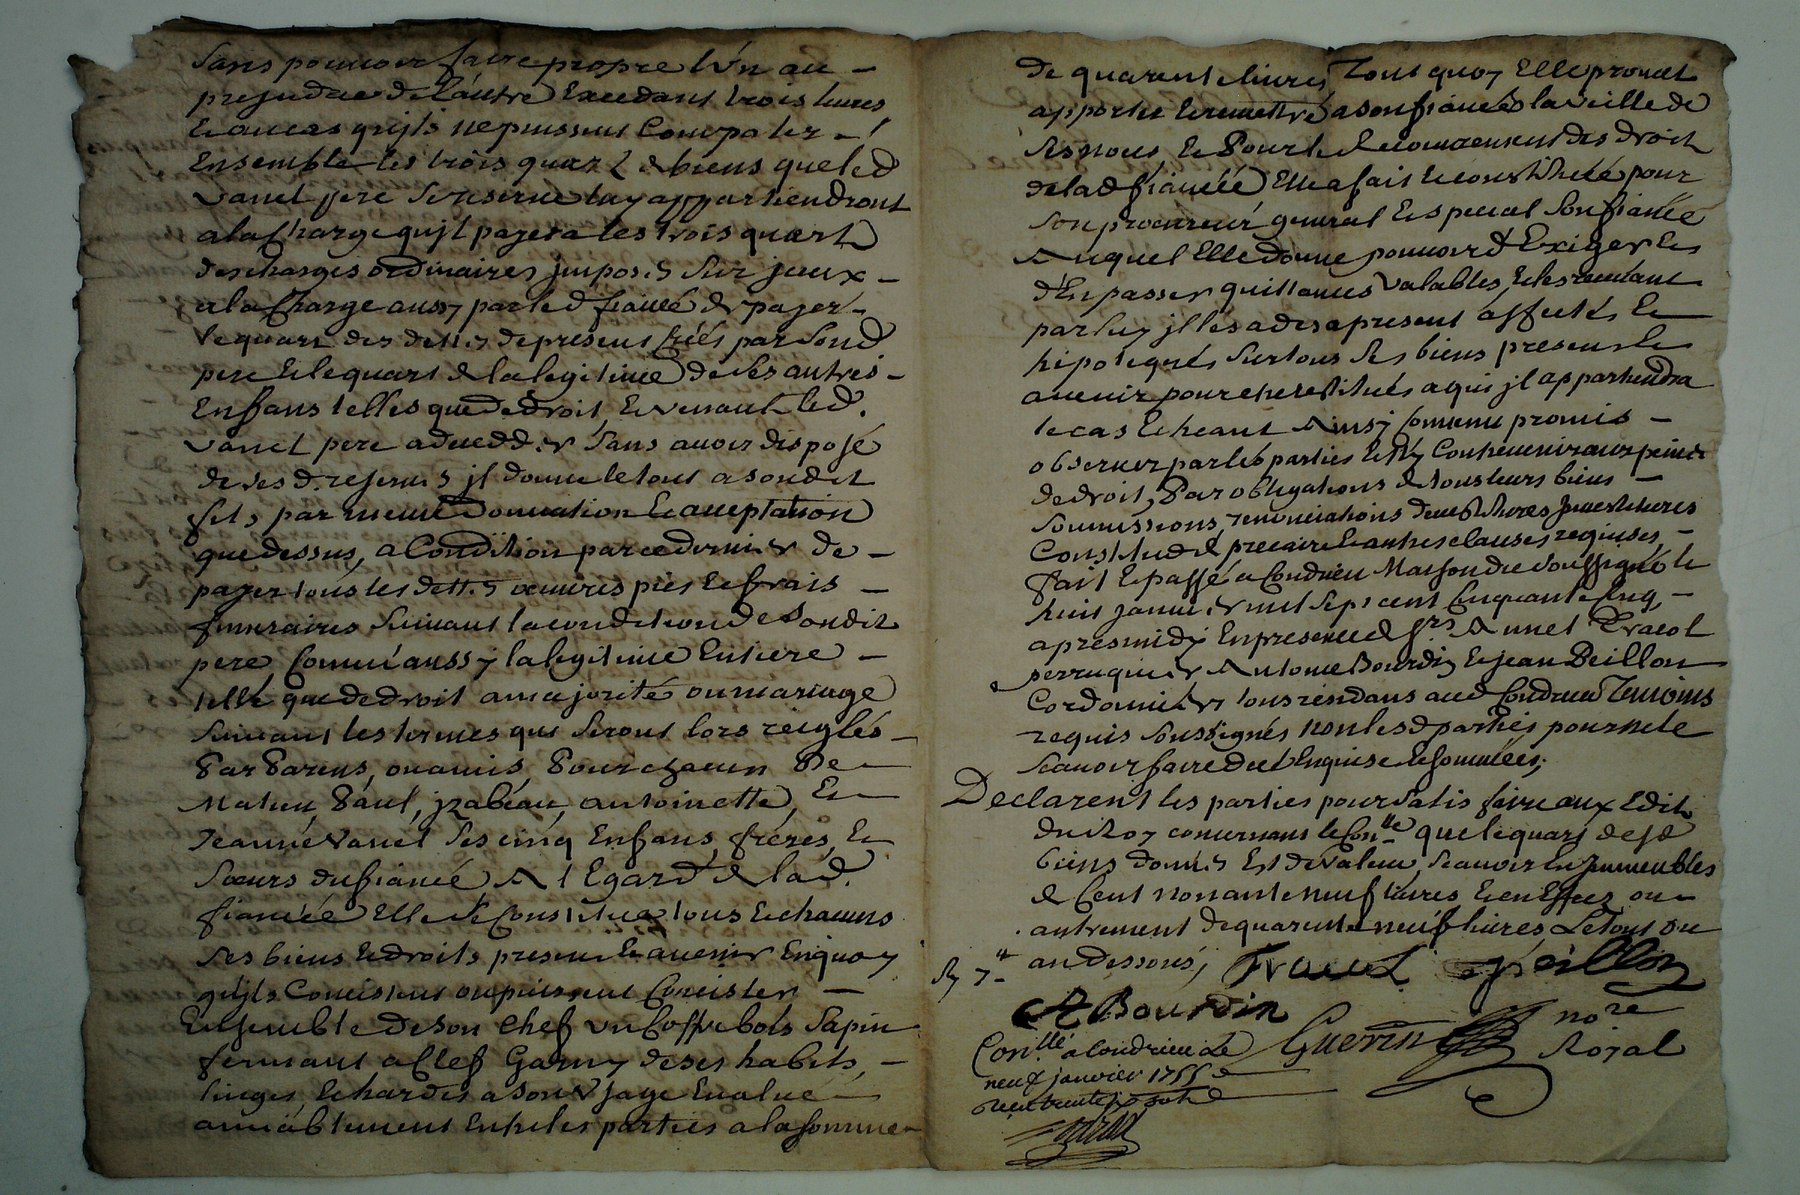 Sans pouvoir faire propre l'un au
prejudice de L'autre Excedant trois livres
Et aucas qu'ils ne puissent Compatir
Ensemble les trois quart de biens que led
Vanel pere se reserve luy appartiendront
ala Charge qu'jl payera les trois quart
des charges ordinaires jmposés sur jceux
ala Charge aussy par led fiancé de payer
le quart des dettes de present créés par sond
pere Et le quart de la legitime de ses autres
Enfans telles que de droit, Et venant led.
Vanel pere a deceder sans avoir disposé
de ses d. reserves jl donne le tout a sondit
fils par meme Donnation Et acceptation
que dessus, a Condition par ce dernier de
payer tous les dettes oeuvres pies Et frais
funeraires suivant la condition de sondit
pere Comme aussy la legitime Entiere
telle que de droit a majorité ou mariage
suivant les termes qui seront lors reiglés
Par Parens, ou amis, Pour chacun De
Mathieu, Paul, jzabeau, antoinette, Et
Jeanne Vanel ses cinq Enfans, freres, Et
Sœurs du fiancé, A l'Egard de lad.
fiancée Elle se Constitue tous Et chacuns
ses biens Et droits presens Et avenir En quoy
qu'jls Consistent ou puissent Consister
Ensemble de son Chef un Coffre bois Sapin
fermant a Clef Garny de ses habits,
linges Et hardes a son Usage Evalué
amiablement Entre les parties a la somme
de quarente livres Tout quoy Elle promet
apporter Et remettre a son fiancé la veille de
ses noces, Et Pour le Recouvrement des droits
de lad fiancée Elle a fait Et constitué pour
son procureur general Et special son fiancé
Auquel Elle donne pouvoir d'Exiger les
d'En passer quittances Valables, Et les recevant
par luy jl les a des apresent affectés Et
hipotequés sur tous ses biens presens Et
avenir pour etre restitués a qui jl appartiendra
le cas Echeant Ainsy convenu promis
observer par les parties Et N'y Contrevenir aux peines
de droit, Par obligations de tous leurs biens
Soumissions, renonciations
Constitut de precaire Et autres clauses requises,
fait Et passé a Condrieu Maison du soussigné le
huit janvier mil sept cent Cinquante Cinq,
apres midy En presence de srs Annet Tracol
perruquier Antoine Bourdin Et Jean Peillon
Cordonnier tous residans aud Condrieu Temoins
requis soussignés non lesd parties pour ne le
scavoir faire de ce Enquises Et sommées;
Declarent les parties pour satisfaire aux Edits
concernans le Con.lle que le quart desd
biens donnés Est de valeur, scavoir En jmmeubles
de Cent nonante neuf livres Et en Effets ou
autrement de quarente neuf livres, Le tout ou
au dessous, Tracol Peillon
A Bourdin
Guerin nore
Royal
Con.llé a Condrieu Le
neuf janvier 1755